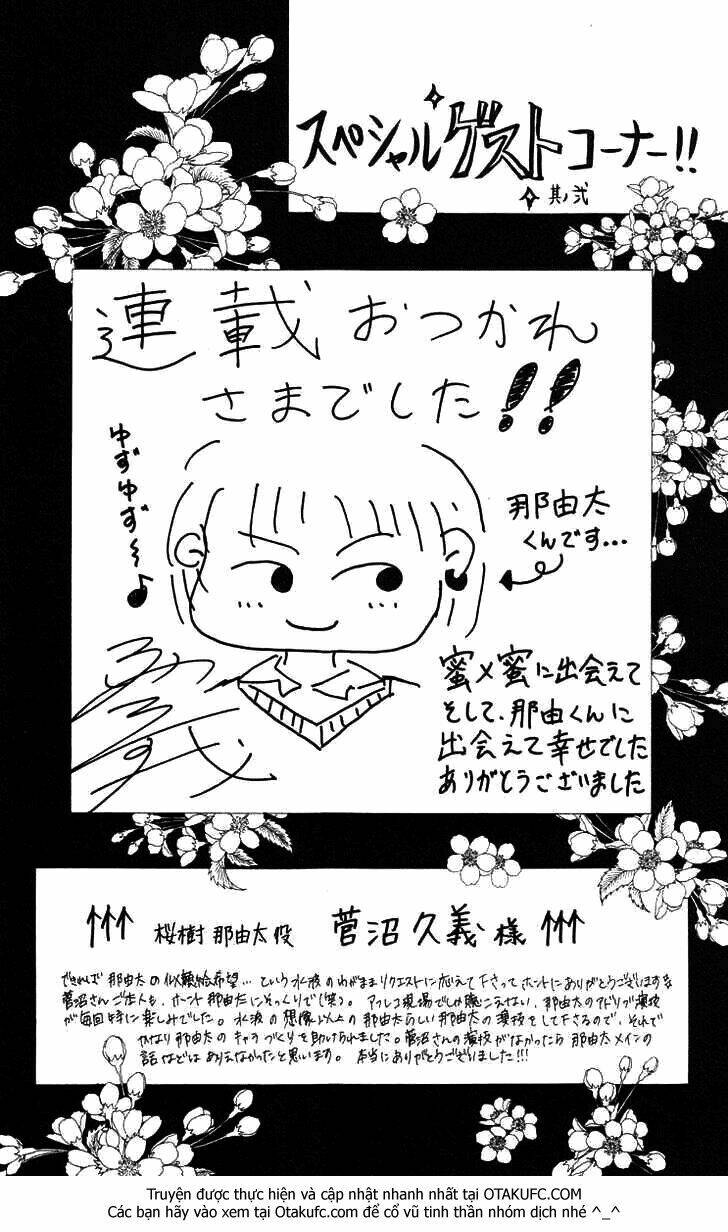 スペシャルゲストコーナー!!
其ノ弐
連載おつかれ
さまでした!!
ゆずゆず〜♪
那由太
くんです...
蜜×蜜に出会えて
そして、那由くんに
出会えて幸せでした
ありがとうございました
↑↑↑ 桜樹 那由太役 菅沼久義様 ↑↑↑
できれば 那由太の似顔絵希望… という水波のわがままリクエストに応えて下さってホントにありがとうございます
菅沼さんご本人も、ホント 那由太にそっくりで(笑)。 アフレコ現場でしか聴こえない、那由太のアドリブ演技
が毎回特に楽しみでした。水波の想像以上の那由太らしい那由太の演技をして下さるので、それで
かなり那由太の キャラづくりを助けられました。菅沼さんの演技がなかったら 那由太メインの
話などは ありえなかったと思います。 本当にありがとうございました!!!
Truyện được thực hiện và cập nhật nhanh nhất tại OTAKUFC.COM
Các bạn hãy vào xem tại Otakufc.com để cổ vũ tinh thần nhóm dịch nhé ^_^